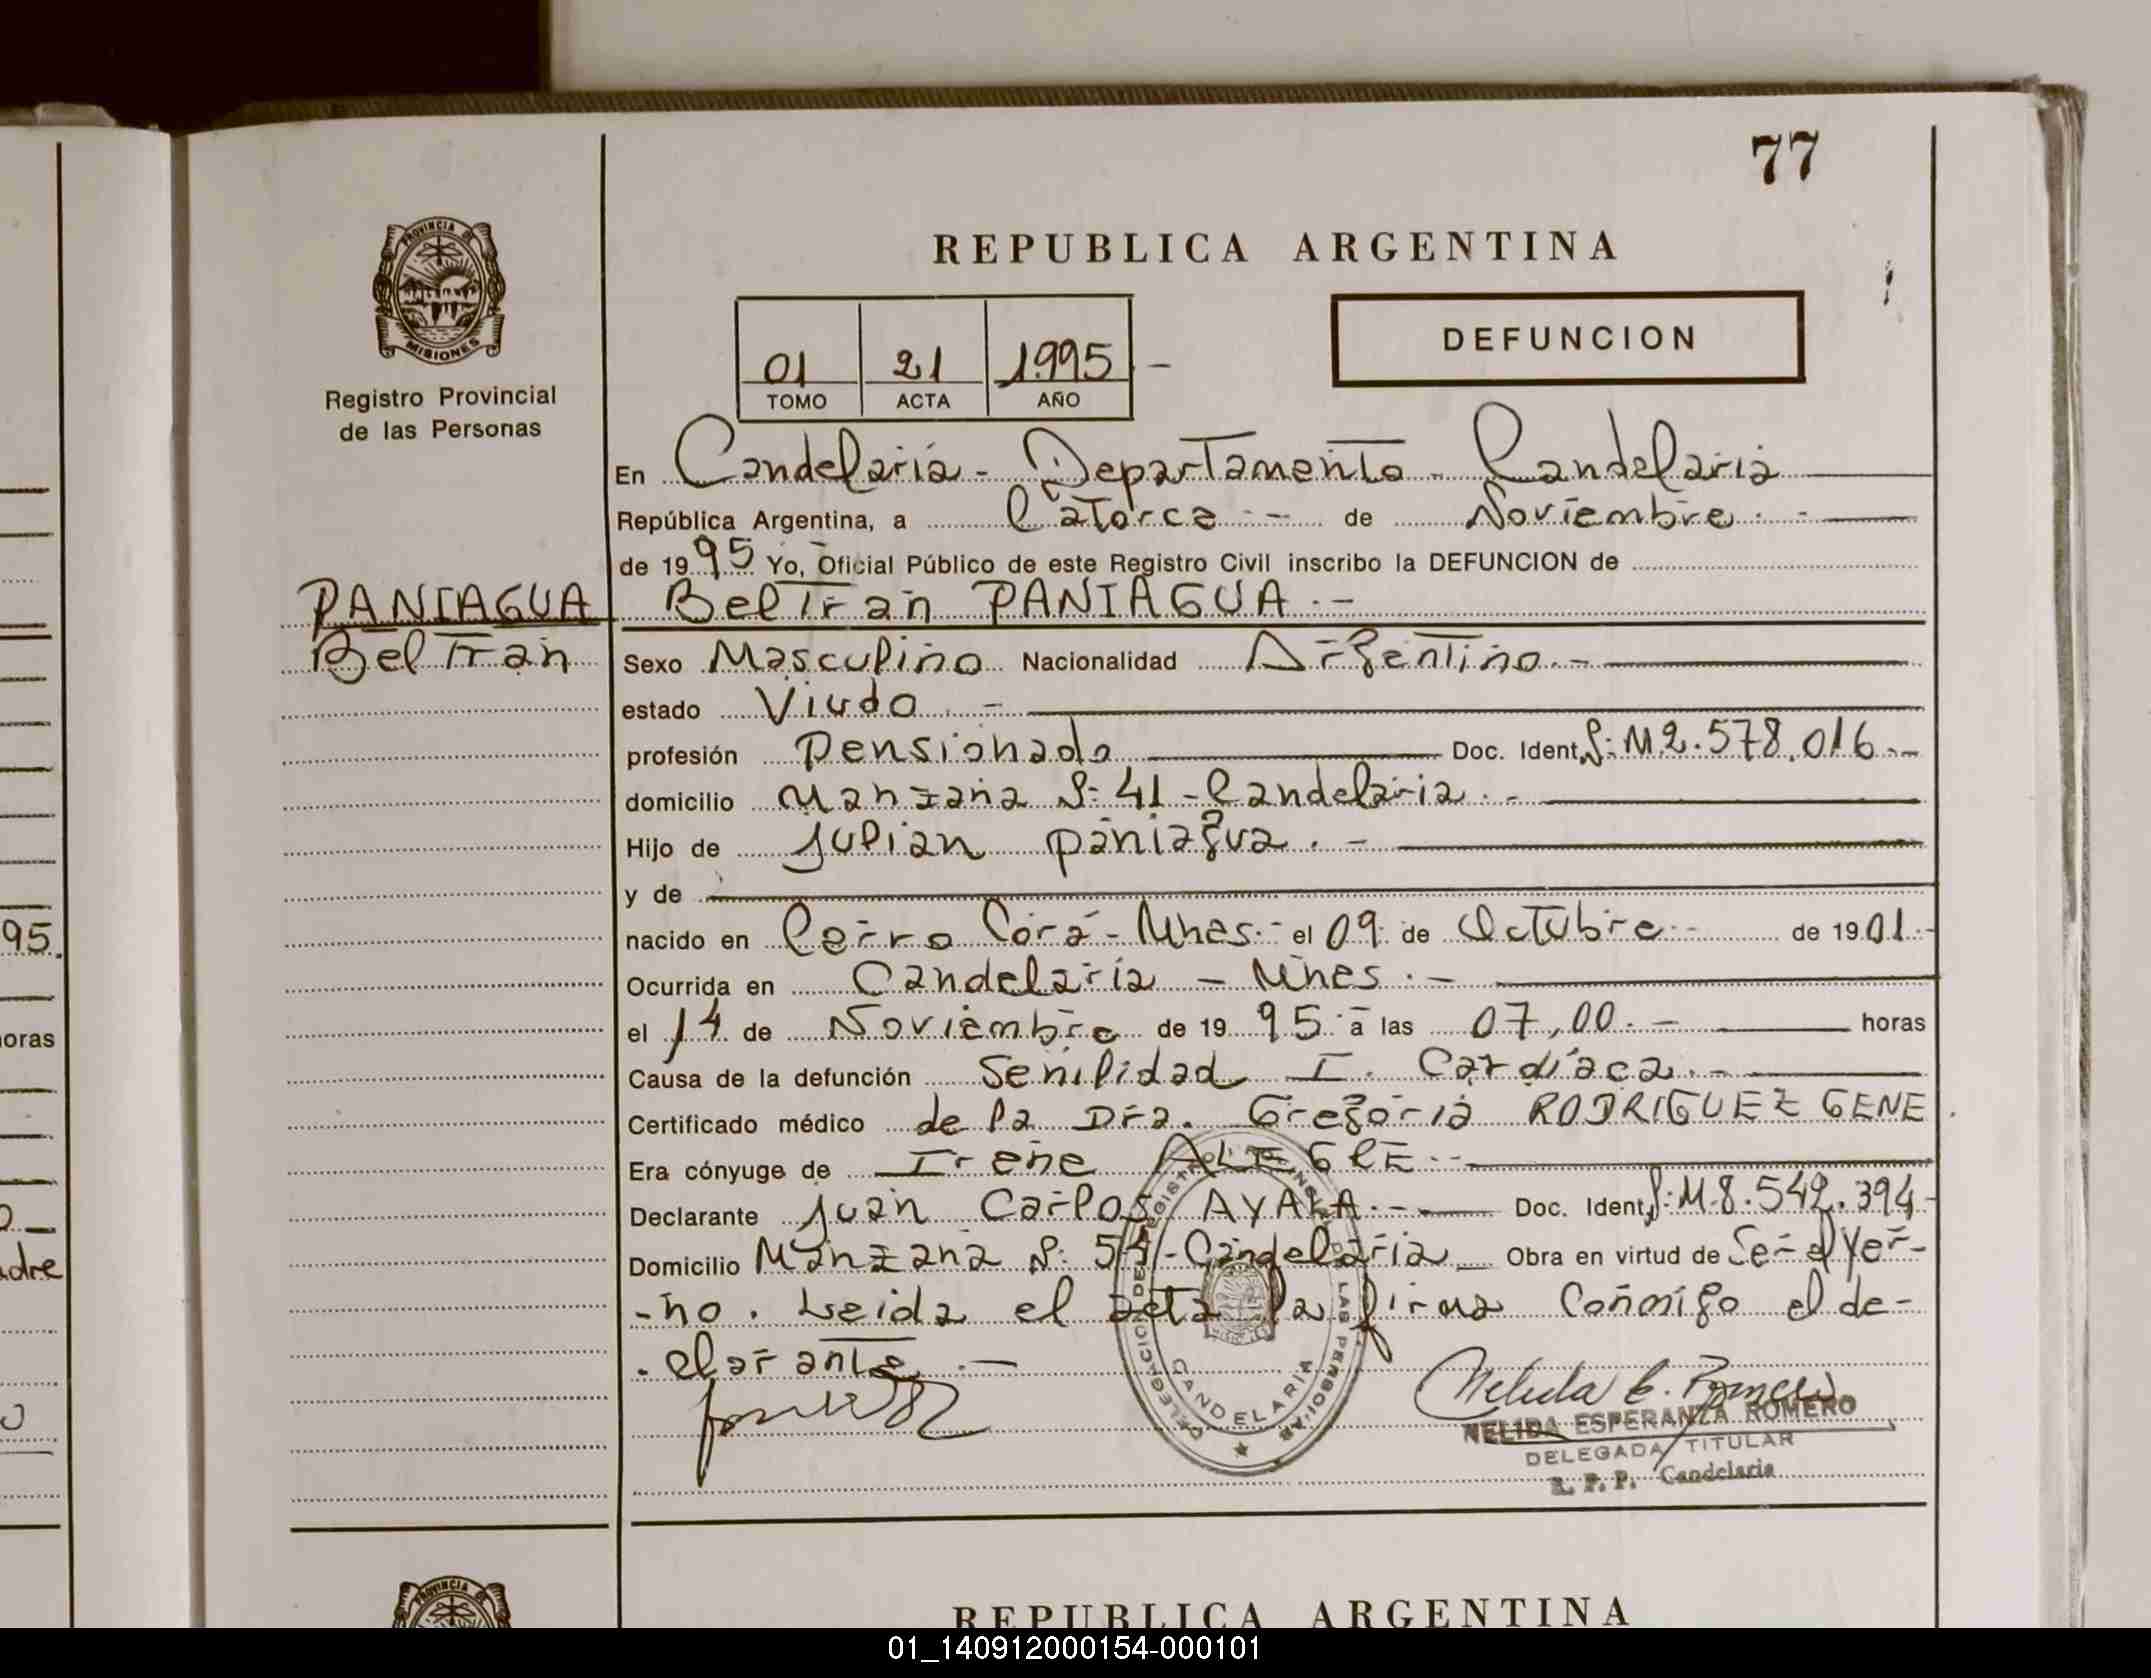 77
PROVINCIA DE
MISIONES
Registro Provincial
de las Personas
REPUBLICA ARGENTINA
01 21 1.995 -
TOMO ACTA AÑO
DEFUNCION
En Candelaria - Departamento - Candelaria
República Argentina, a Catorce -- de Noviembre . -
de 1995 Yo, Oficial Público de este Registro Civil inscribo la DEFUNCION de
PANIAGUA Beltran PANIAGUA . -
Beltran Sexo Masculino Nacionalidad Argentino . -
estado Viudo . -
profesión pensionado Doc. Ident. Nº: M 2.578.016 . -
domicilio Manzana Nº: 41 - Candelaria . -
Hijo de Julian paniagua . -
y de
nacido en Cerro Corá - Mnes. - el 09 de Octubre - de 1901 . -
Ocurrida en Candelaria - Mnes . -
el 14 de Noviembre de 1995 a las 07,00 . - horas
Causa de la defunción Senilidad I. Cardíaca . -
Certificado médico de la Dra. Gregoria RODRIGUEZ GENE .
Era cónyuge de Irene ALEGRE . -
Declarante Juan Carlos AYALA . - Doc. Ident. Nº: M 8.542.394 -
Domicilio Manzana Nº: 54 - Candelaria Obra en virtud de Ser el Yer-
-no . Leida el acta la firma conmigo el de-
- clarante . -
Nelida E. Romero
NELIDA ESPERANZA ROMERO
DELEGADA TITULAR
R. P. P. Candelaria
CANDELARIA
95.
horas
adre
REPUBLICA ARGENTINA
PROVINCIA DE
01_140912000154-000101